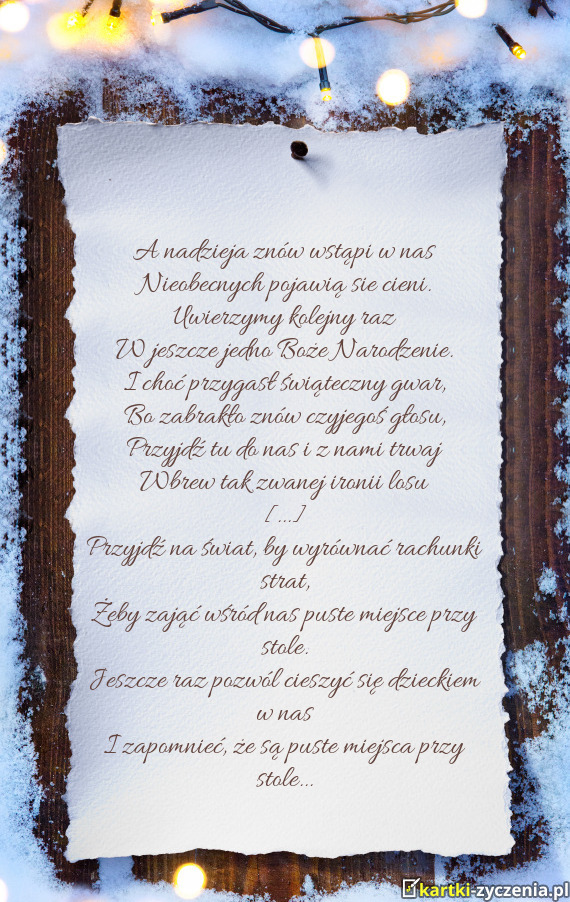 A nadzieja znów wstąpi w nas
Nieobecnych pojawią sie cieni.
Uwierzymy kolejny raz
W jeszcze jedno Boże Narodzenie.
I choć przygasł świąteczny gwar,
Bo zabrakło znów czyjegoś głosu,
Przyjdź tu do nas i z nami trwaj
Wbrew tak zwanej ironii losu
[...]
Przyjdź na świat, by wyrównać rachunki
strat,
Żeby zająć wśród nas puste miejsce przy
stole.
Jeszcze raz pozwól cieszyć się dzieckiem
w nas
I zapomnieć, że są puste miejsca przy
stole...
kartki-zyczenia.pl